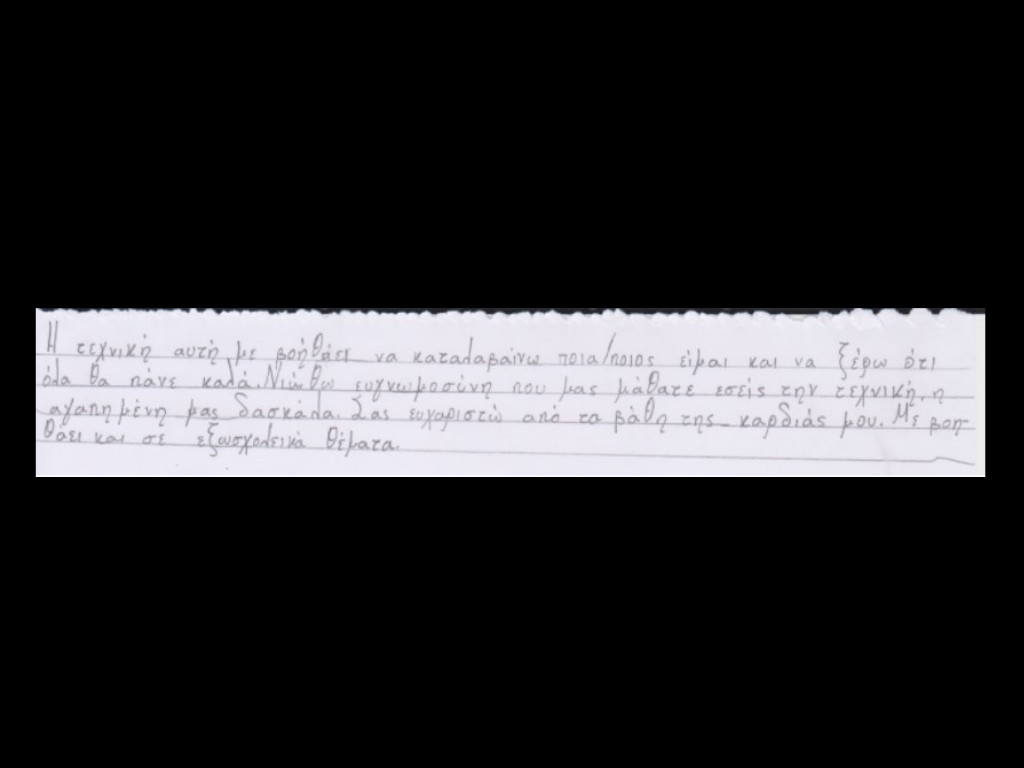 Η τεχνική αυτή με βοήθάει να καταλαβαίνω ποια/ποιος είμαι και να ξέρω ότι
όλα θα πάνε καλά. Νιώθω ευγνωμοσύνη που μας μάθατε εσείς την τεχνική, η
αγαπημένη μας δασκάλα. Σας ευχαριστώ από τα βάθη της καρδιάς μου. Με βοη-
θάει και σε εξωσχολεικά θέματα.